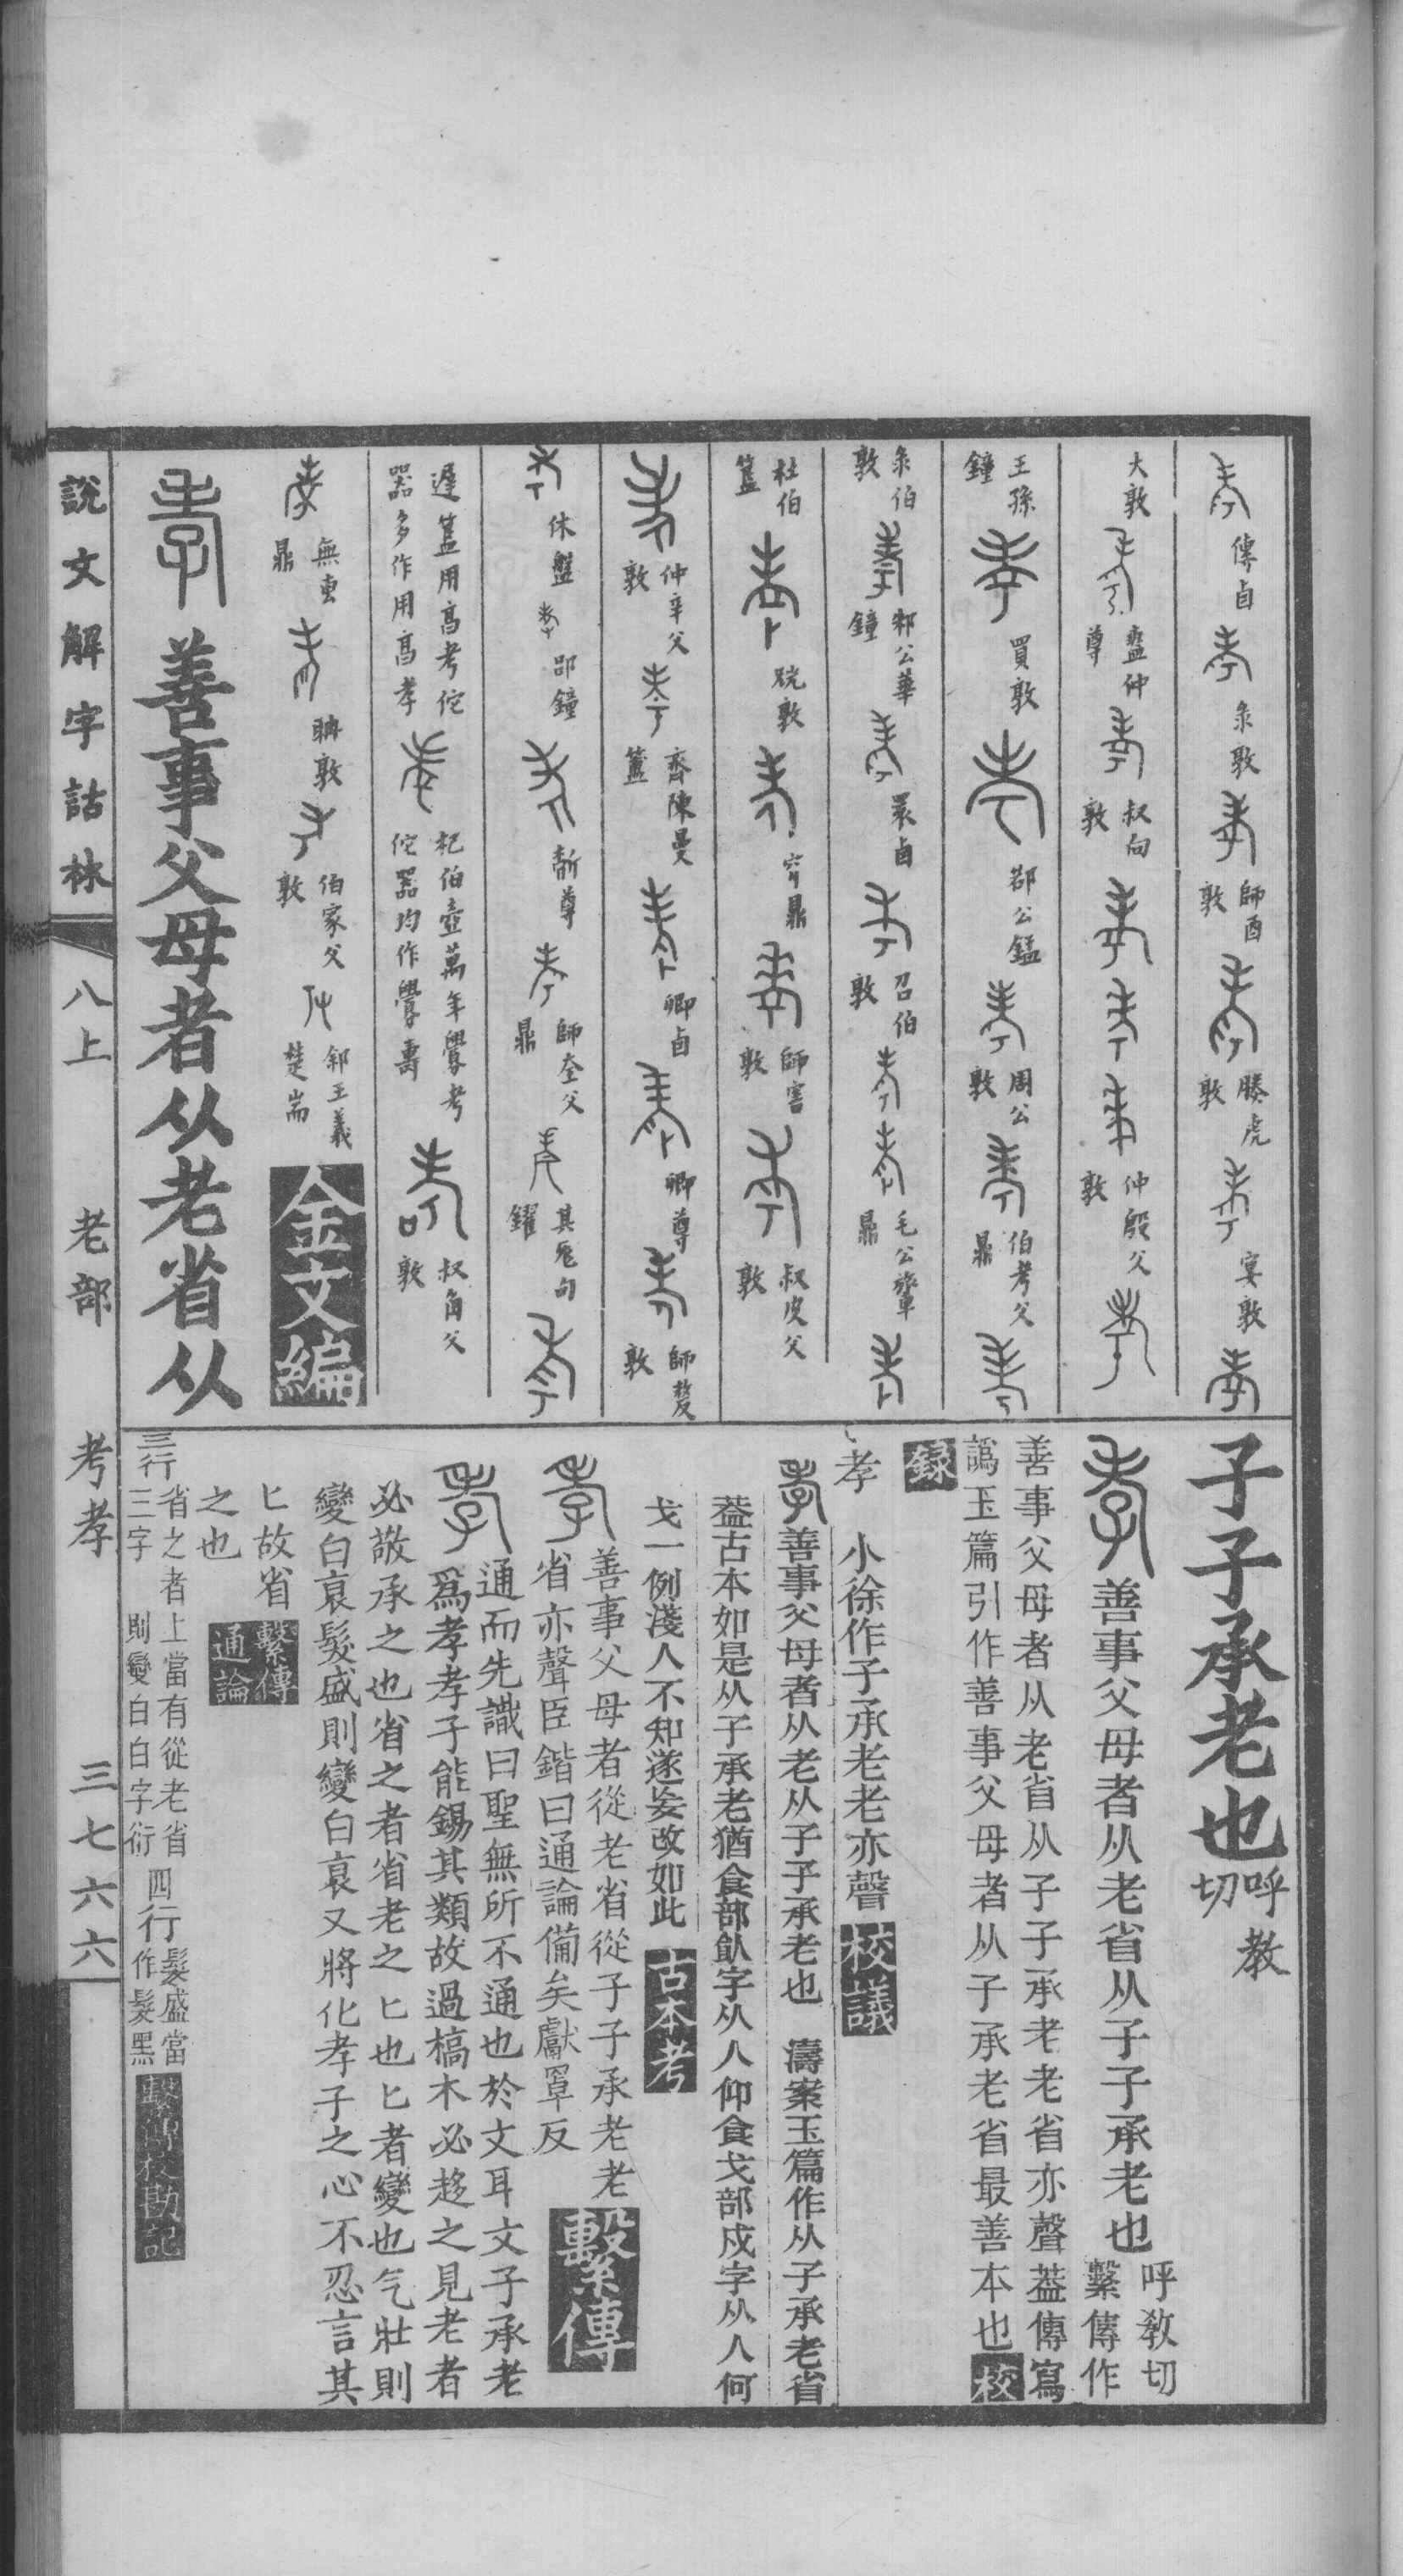 傳卣 彔敦 師酉敦 滕虎敦 宴敦
大敦 盠仲尊 叔向敦 仲殷父敦
王孫鐘 買敦 鄀公𥂴 周公敦 伯考父鼎
彔伯敦 邾公華鐘 睘卣 召伯敦 毛公鼎
杜伯簋 敦 鼎 師害敦 叔皮父敦
仲辛父敦 齊陳曼簠 卿卣 卿尊 師𠩺敦
休盤 邵鐘 尊 師㚇父鼎 其句鑃
遟簋用高考佗器多作用高孝 杞伯壺萬年眉考佗器均作眉壽 叔角父敦
無叀鼎 敦 伯家父敦 郐王義楚耑 金文編
孝 善事父母者从老省从
子子承老也呼教切
孝善事父母者从老省从子子承老也呼教切繫傳作
善事父母者从老省从子子承老老省亦聲葢傳寫
譌玉篇引作善事父母者从子承老省最善本也校
録
孝 小徐作子承老老亦聲 校議
孝善事父母者从老从子子承老也 濤案玉篇作从子承老省
葢古本如是从子承老猶食部飤字从人仰食戈部戍字从人何
戈一例淺人不知遂妄改如此 古本考
孝善事父母者從老省從子子承老老
省亦聲臣鍇曰通論備矣獻罩反 繫傳
孝通而先識曰聖無所不通也於文耳文子承老
爲孝孝子能錫其類故過槁木必趍之見老者
必敬承之也省之者省老之匕也匕者變也气壯則
變白哀髮盛則變白哀又將化孝子之心不忍言其
匕故省繫傳
之也通論
三行省之者上當有從老省三字 則變白白字衍 四行髮盛當作髮黑 繫傳校勘記
說文解字詁林 八上 老部 考孝 三七六六